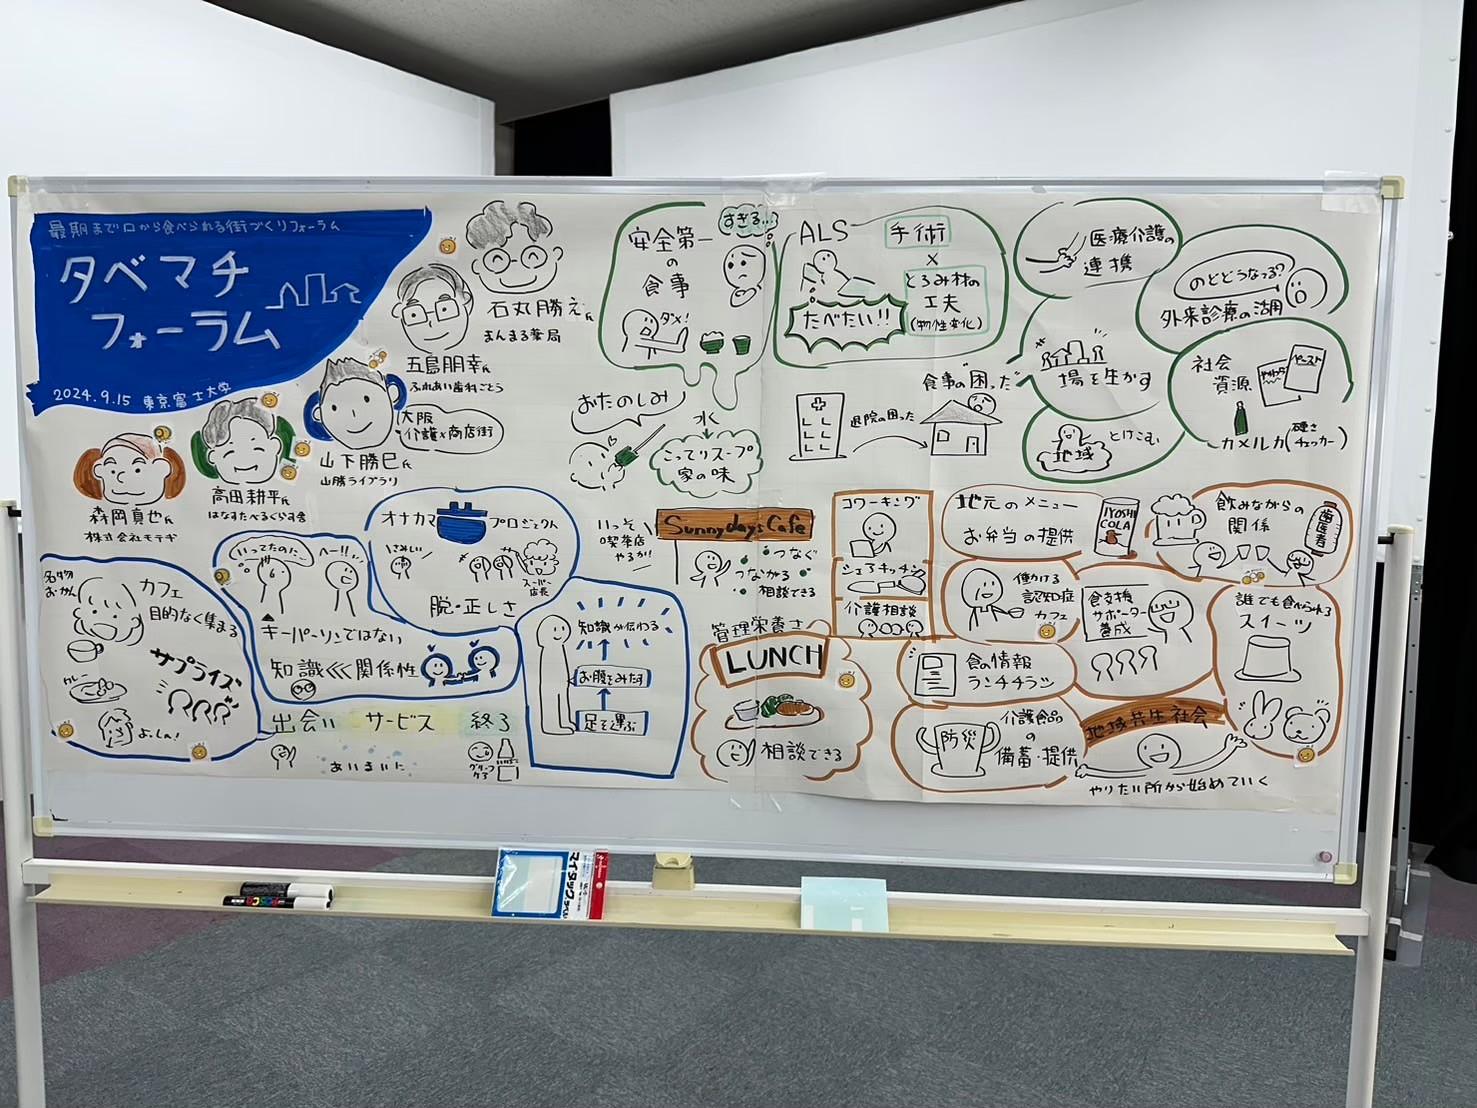 最期まで口から食べられる街づくりフォーラム
タベマチ
フォーラム
2024.9.15 東京富士大学
石丸勝えﾐ氏
まんまる薬局
五島朋幸氏
ふれあい歯科ごとう
大阪
介護×商店街
山下勝巳氏
山勝ライブラリ
高田耕平氏
はなすたべるくらす舎
森岡真也氏
株式会社モテギ
安全第一
の
食事
すぎる…?
ダメ!
ALS
手術
×
とろみ材の
工夫
(物性変化)
たべたい!!
おたのしみ
水
こってりスープ
家の味
退院の困った
食事の"困った"
医療介護の
連携
のどどうなってる?
外来診療の活用
場を生かす
社会
資源
ペースト
カメルカ(硬さチェッカー)
とけこむ
地域
名物
おかん
カフェ
目的なく集まる
サプライズ
カレー
よっしゃ!
いってたのに…
へー!!
キーパーソンではない
知識<<<関係性
オナカマ プロジェクト
さみしい
スーパー
店長
脱・正しさ
出会い サービス 終了
あいまいに
知識が伝わる
お腹をみたす
足を運ぶ
いっそ
喫茶店
やるか!!
Sunnydays Cafe
つなぐ
つながる
相談できる
管理栄養士
LUNCH
相談できる
コワーキング
シェアキッチン
介護相談
地元のメニュー
お弁当の提供
IYOSHI
COLA
飲みながらの
関係
歯医者
働ける
認知症
カフェ
食支援
サポーター
養成
誰でも食べられる
スイーツ
食の情報
ランチチラシ
防災
介護食品
の
備蓄・提供
地域共生社会
やりたい所から始めていく